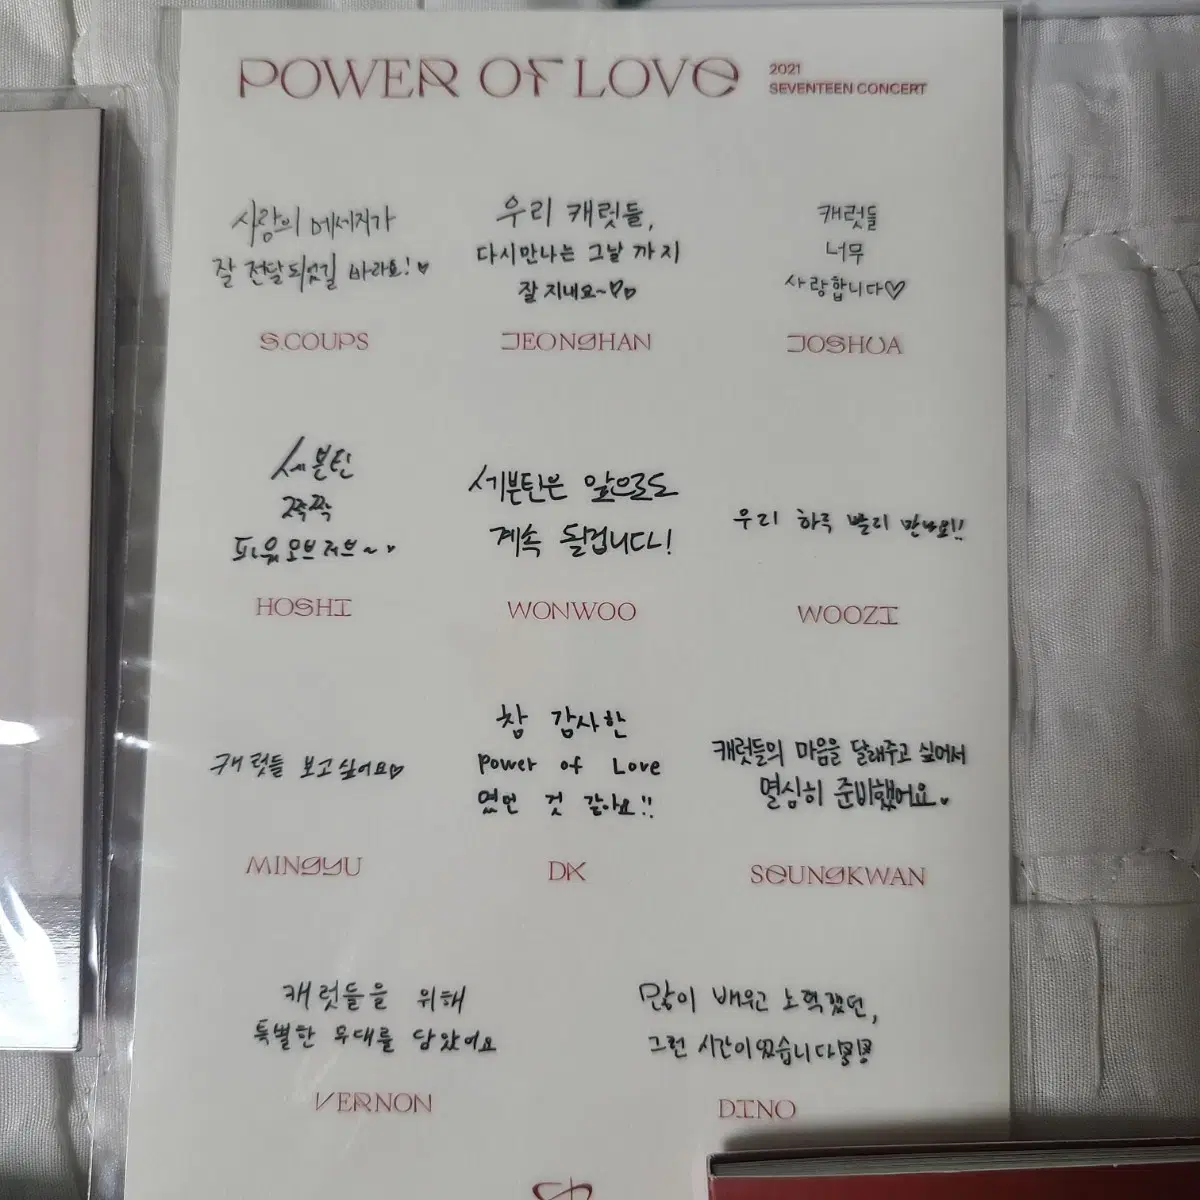 POWER OF LOVE
2021
SEVENTEEN CONCERT
사랑의 메세지가
잘 전달되었길 바라요!♥
S.COUPS
우리 캐럿들,
다시만나는 그날 까지
잘 지내요~♡♡
JEONGHAN
캐럿들
너무
사랑합니다♡
JOSHUA
세븐틴
쭉쭉
파워오브러브~♥
HOSHI
세븐틴은 앞으로도
계속 될겁니다!
WONWOO
우리 하루 빨리 만나요!!
WOOZI
캐럿들 보고싶어요♡
MINGYU
참 감사한
Power of Love
였던 것 같아요!!
DK
캐럿들의 마음을 달래주고 싶어서
열심히 준비했어요♥
SEUNGKWAN
캐럿들을 위해
특별한 무대를 담았어요
VERNON
많이 배우고 노력했던,
그런 시간이었습니다!!
DINO